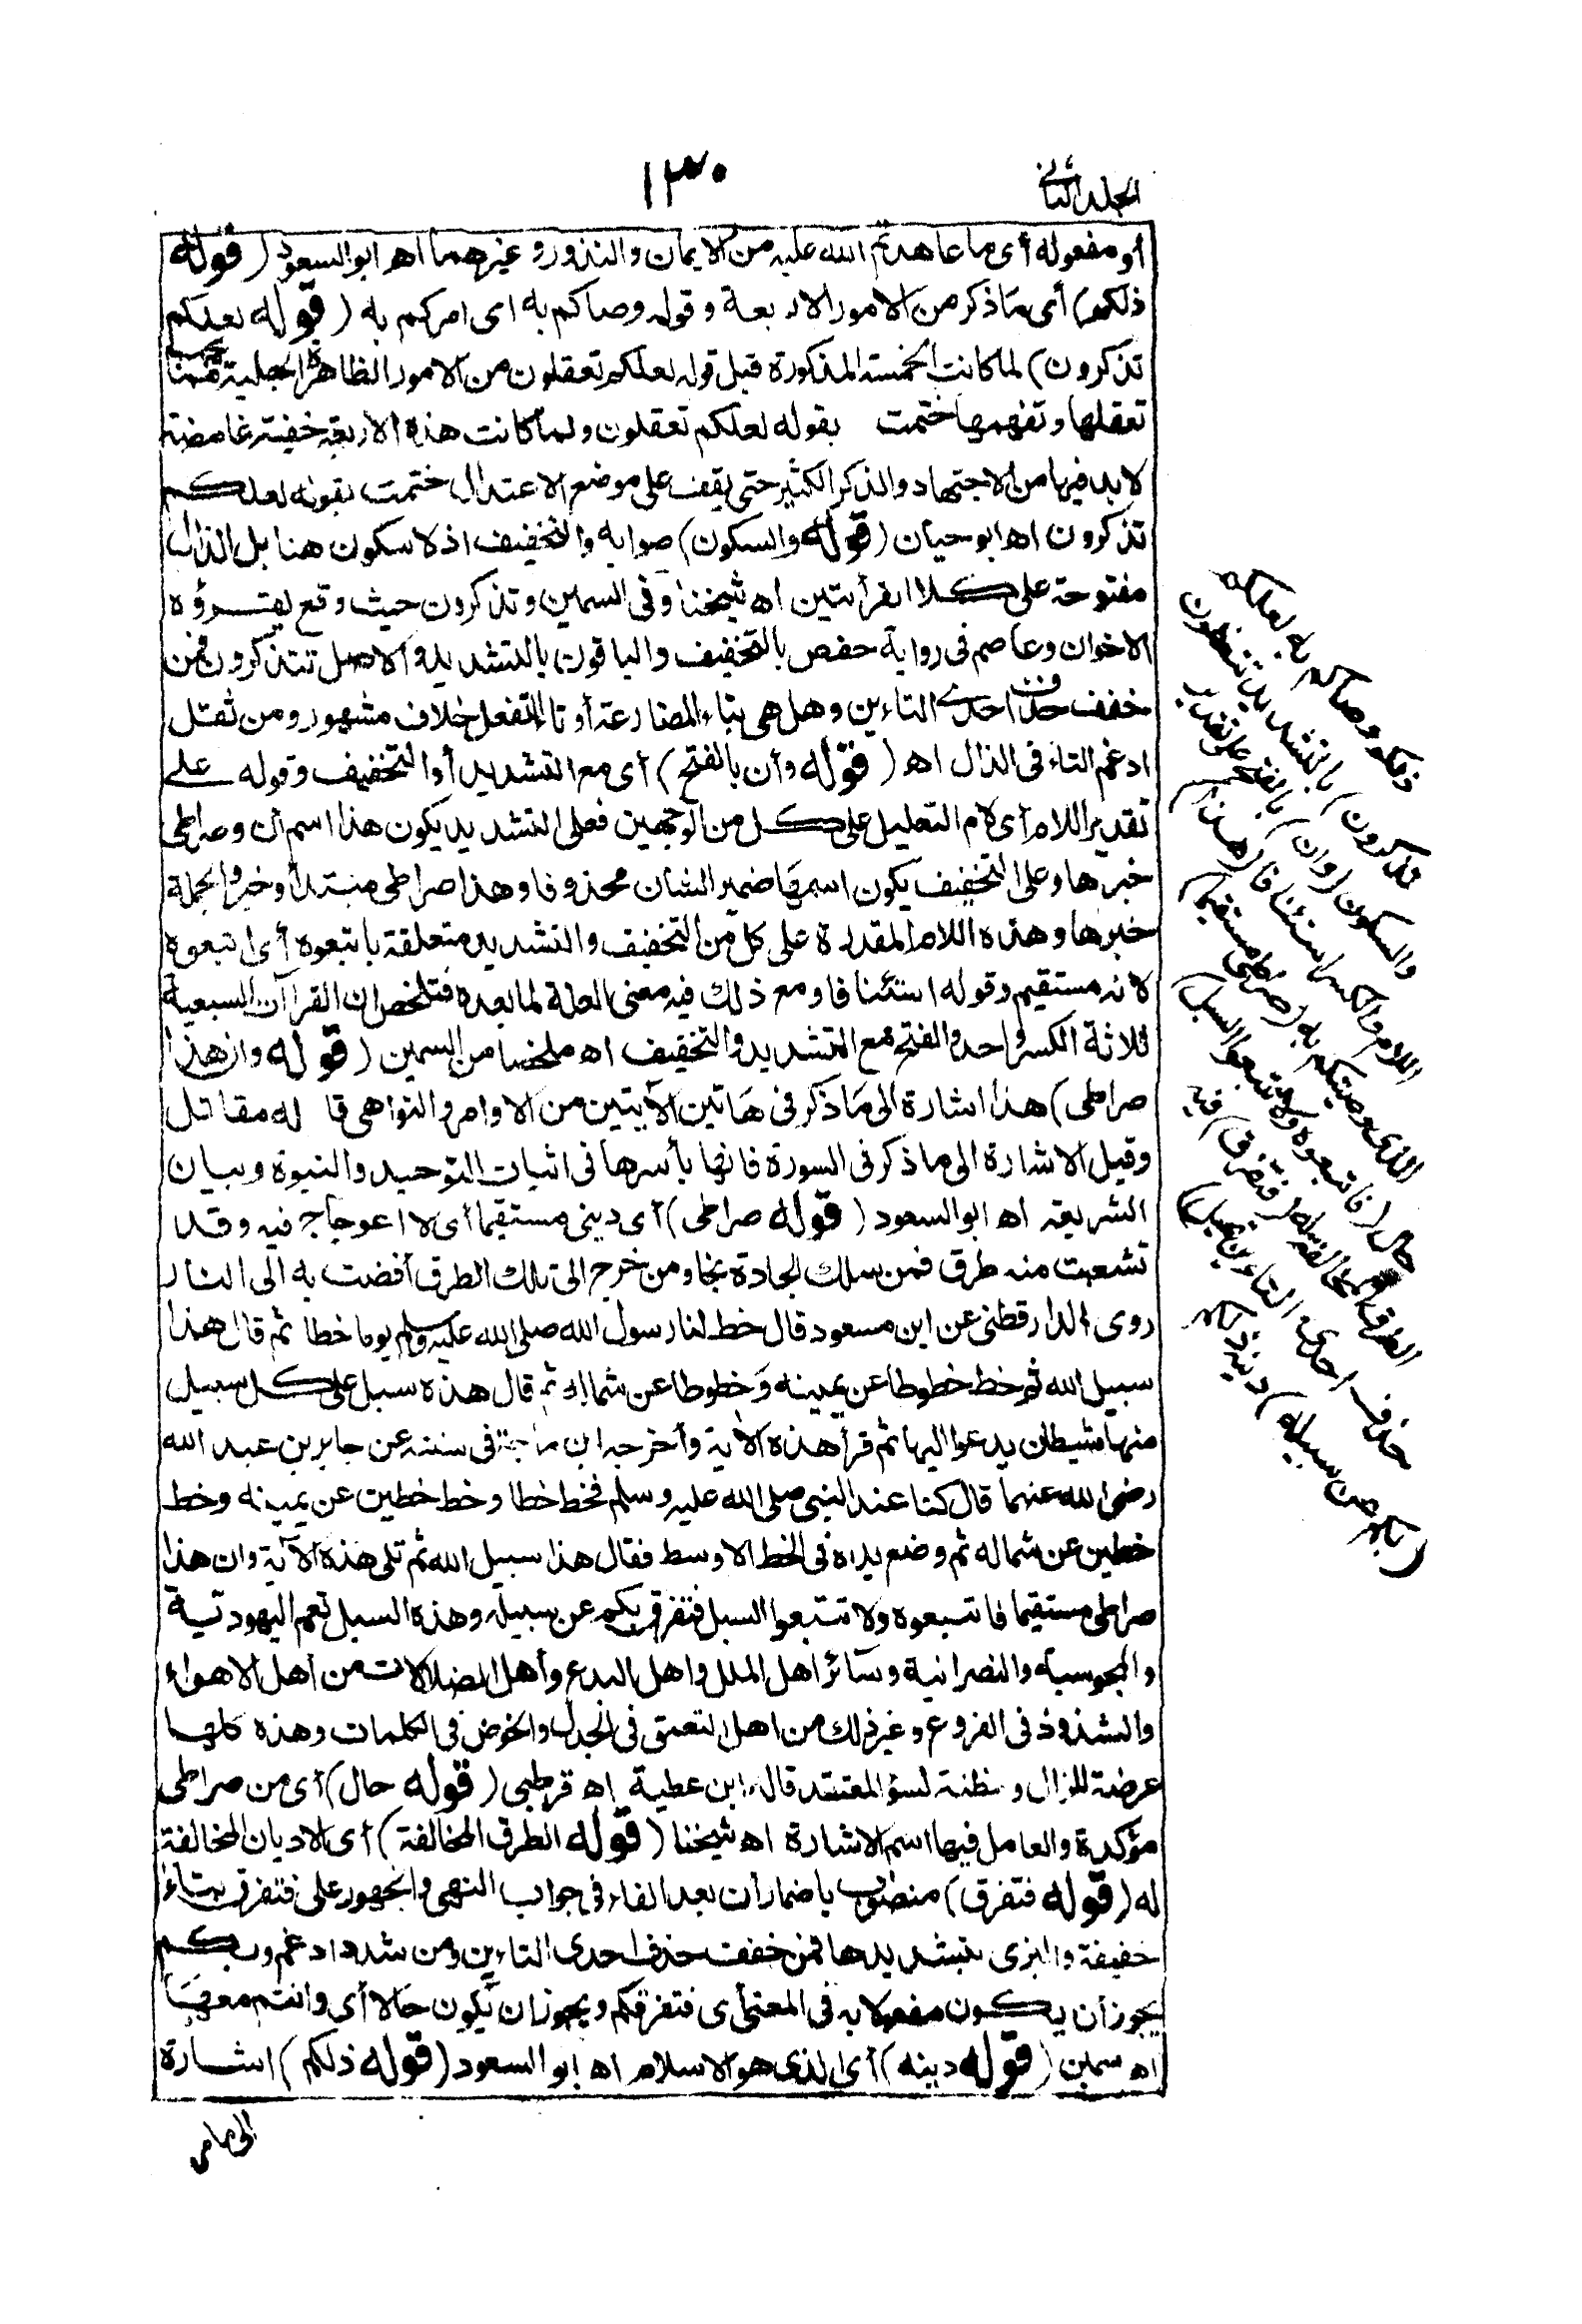 الجلد الثانى
١٣٠
أو مفعوله أى ما عاهدتم الله عليه من الايمان والنذور وغيرهما اه ابو السعود (قوله
ذلكم) أى مَا ذكر من الامور الاربعة وقوله وصاكم به اى امركم به (قوله لعلكم
تذكرون) لما كانت الخمسة المذكورة قبل قوله لعلكم تعقلون من الامور الظاهرة الجلية
تعقلها وتفهمها ختمت بقوله لعلكم تعقلون ولما كانت هذه الاربعة خفية غامضة
لابد فيها من الاجتهاد والذكر الكثير حتى يقف على موضع الاعتدال ختمت بقوله لعلكم
تذكرون اه ابو حيان (قوله والسكون) صوابه والتخفيف اذ لا سكون هنا بل الذال
مفتوحة على كلا القرأتين اه شيخنا وفى السمين وتذكرون حيث وقع يقرؤه
الاخوان وعاصم فى رواية حفص بالتخفيف والباقون بالتشديد والاصل تتذكرون فمن
خفف حذف احدى التاءين وهل هى بتاء المضارعة أو تاء التفعل خلاف مشهور ومن ثقل
ادغم التاء فى الذال اه (قوله وأن بالفتح) أى مع التشديد أو التخفيف وقوله على
تقدير اللام أى لام التعليل على كل من الوجهين فعلى التشديد يكون هذا اسم أن وصراطى
خبرها وعلى التخفيف يكون اسمهَا ضمير الشان محذوفا وهذا صراطى مبتدأ وخبر والجملة
خبرها وهذه اللام المقدرة على كل من التخفيف والتشديد متعلقة باتبعوه أى اتبعوه
لانه مستقيم وقوله استئنافا ومع ذلك فيه معنى العلة لما بعده فتلخص ان القراآت السبعية
ثلاثة الكسر واحد والفتح مع التشديد والتخفيف اه ملخصا من السمين (قوله وان هذا
صراطى) هذا اشارة الى مَا ذكر فى هَاتين الآيتين من الاوامر والنواهى قاله مقاتل
وقيل الاشارة الى ما ذكر فى السورة فانها بأسرها فى اثبات التوحيد والنبوة وبيان
الشريعة اه ابو السعود (قوله صراطى) أى دينى مستقيما أى لا اعوجاج فيه وقد
تشعبت منه طرق فمن سلك الجادة نجا ومن خرج الى تلك الطرق أفضت به الى النار
روى الدارقطنى عن ابن مسعود قال خط لنا رسول الله صلى الله عليه وسلم يوما خطا ثم قال هذا
سبيل الله ثم خط خطوطا عن يمينه وَخطوطا عن شماله ثم قال هذه سبل على كل سبيل
منها شيطان يدعوا اليها ثم قرأ هذه الآية وأخرجه ابن ماجة فى سننه عن جابر بن عبد الله
رضى الله عنهما قال كنا عند النبى صلى الله عليه وسلم فخط خطا وخط خطين عن يمينه وخط
خطين عن شماله ثم وضع يده فى الخط الاوسط فقال هذا سبيل الله ثم تلى هذه الآية وان هذا
صراطى مستقيما فاتبعوه ولا تتبعوا السبل فتفرق بكم عن سبيله وهذه السبل تعم اليهودية
والمجوسية والنصرانية وسَائر اهل الملل واهل البدع وأهل الضلالات من أهل الاهواء
والشذوذ فى الفروع وغير ذلك من اهل التعمق فى الجدل والخوض فى الكلمات وهذه كلها
عرضة للزال ومظنة لسؤ المعتقد قاله ابن عطية اه قرطبى (قوله حال) أى من صراطى
مؤكدة والعامل فيها اسم الاشارة اه شيخنا (قوله الطرق المخالفة) أى الاديان المخالفة
له (قوله فتفرق) منصوب باضمار أن بعد الفاء فى جواب النهى والجمهور على فتفرق بتاء
خفيفة والبزى بتشديدها فمن خفف حذف احدى التاءين ومن شدد ادغم وبكم
يجوز أن يكون مفعولا به فى المعنى أى فتفرقكم ويجوز ان تكون حَالا أى وانتم معهَا
اه سمين (قوله دينه) أى الذى هو الاسلام اه ابو السعود (قوله ذلكم) اشارة
الى مامر
ذلكم وصاكم به لعلكم
تذكرون) بالتشديد تتعظون
والسكون (وان) بالفتح على تقدير
اللام والكسر استئنافا (هذا)
الذى وصيتكم به (صراطى مستقيما)
حال (فاتبعوه ولا تتبعوا السبل)
الطرق المخالفة له (فتفرق) فيه
حذف احدى التاءين تميل)
(بكم عن سبيله) دينه ذلكم